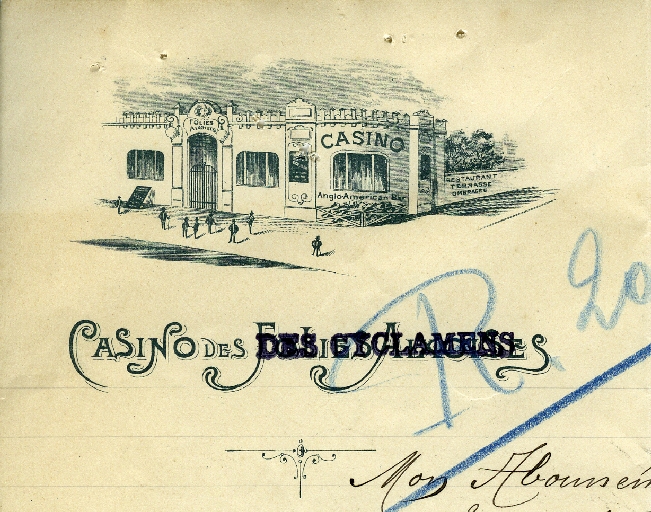 FOLIES
CASINO
Anglo-American Bar
RESTAURANT
TERRASSE
OMBRAGÉE
R. 20
CASINO DES FOLIES
DES CYCLAMENS
Mon